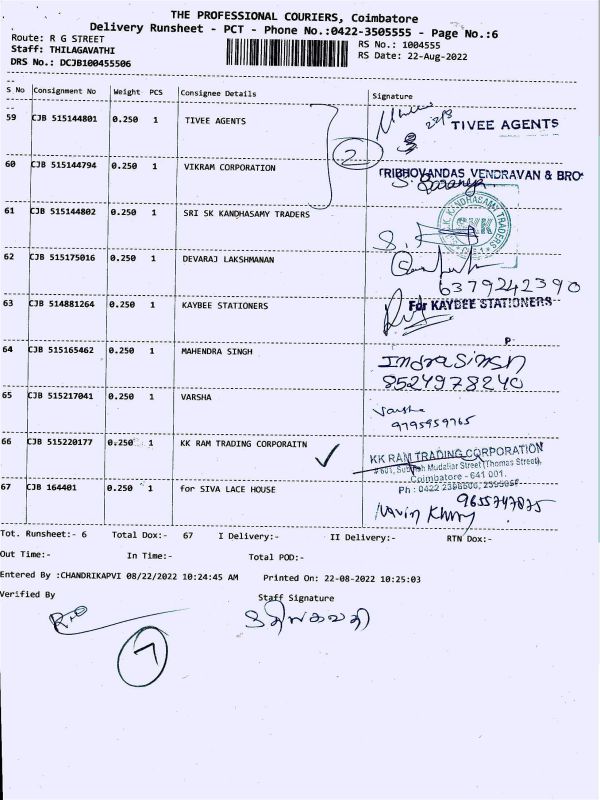 THE PROFESSIONAL COURIERS, Coimbatore
Delivery Runsheet - PCT - Phone No.:0422-3505555 - Page No.:6
Route: R G STREET
RS No.: 1004555
Staff: THILAGAVATHI
RS Date: 22-Aug-2022
DRS No.: DCJB100455506
S No Consignment No Weight PCS Consignee Details Signature
59 CJB 515144801 0.250 1 TIVEE AGENTS
22/8 TIVEE AGENTS
2
60 CJB 515144794 0.250 1 VIKRAM CORPORATION
TRIBHOVANDAS VENDRAVAN & BRO
61 CJB 515144802 0.250 1 SRI SK KANDHASAMY TRADERS
S.K. KANDHASAMY TRADERS
SKK
62 CJB 515175016 0.250 1 DEVARAJ LAKSHMANAN
6379242390
63 CJB 514881264 0.250 1 KAYBEE STATIONERS
For KAYBEE STATIONERS
P
64 CJB 515165462 0.250 1 MAHENDRA SINGH
Indra Singh
8524978240
65 CJB 515217041 0.250 1 VARSHA
Varsha
9795959765
66 CJB 515220177 0.250 1 KK RAM TRADING CORPORAITN
KK RAM TRADING CORPORATION
Mudaliar Street (Thomas Street),
Coimbatore - 641 001.
Ph : 0422
67 CJB 164401 0.250 1 for SIVA LACE HOUSE
9655747875
Tot. Runsheet:- 6 Total Dox:- 67 I Delivery:- II Delivery:- RTN Dox:-
Out Time:- In Time:- Total POD:-
Entered By :CHANDRIKAPVI 08/22/2022 10:24:45 AM Printed On: 22-08-2022 10:25:03
Verified By Staff Signature
திலகவதி
7